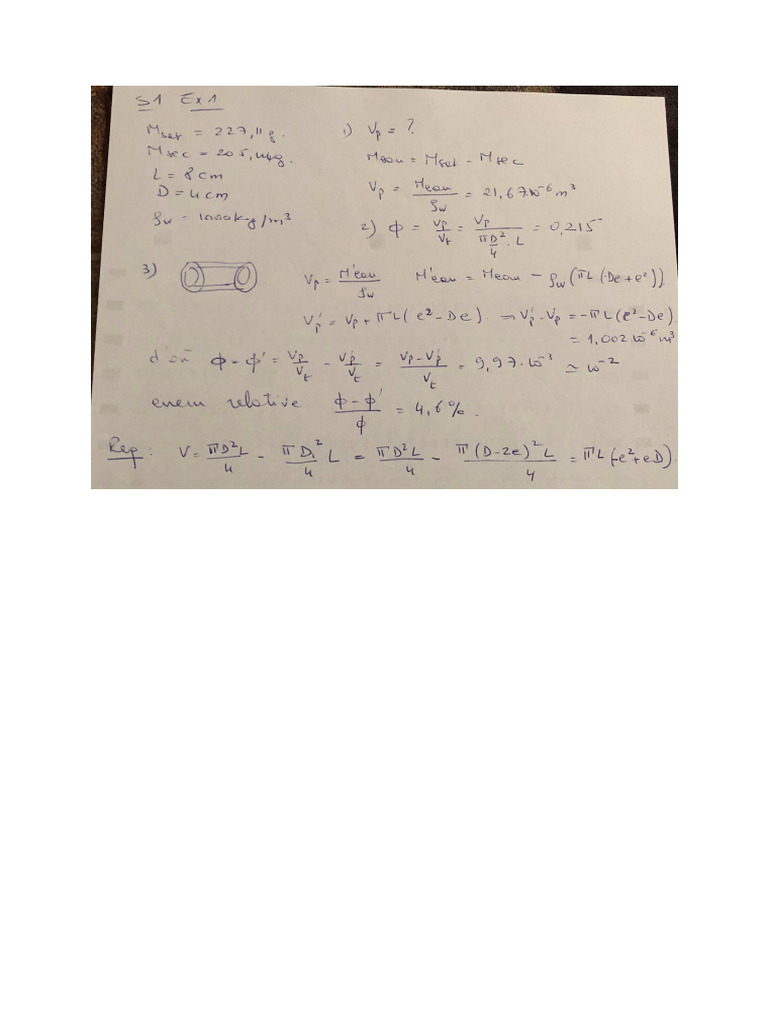 S1 Ex1
M_sat = 227,11g.
M_sec = 205,44g.
L = 8cm
D = 4cm
ρ_w = 1000kg/m³
1) V_p = ?
M_eau = M_sat - M_sec
V_p = M_eau/ρ_w = 21,67.10⁻⁶ m³
2) ϕ = V_p/V_t = V_p/(πD²/4 . L) = 0,215
3) V_p = M'eau/ρ_w M'eau = Meau - ρ_w(πL(-De+e²)).
V'_p = V_p + πL(e²-De). ⇒ V'_p - V_p = -πL(e²-De).
= 1,002 10⁻⁶ m³
d'où ϕ-ϕ' = V_p/V_t - V'_p/V_t = (V_p-V'_p)/V_t = 9,97.10⁻³ ≃ 10⁻²
relative (ϕ-ϕ')/ϕ = 4,6%.
Rep : V = πD²L/4 - πD₁²/4 L = πD²L/4 - π(D-2e)²L/4 = πL(-e²+eD).